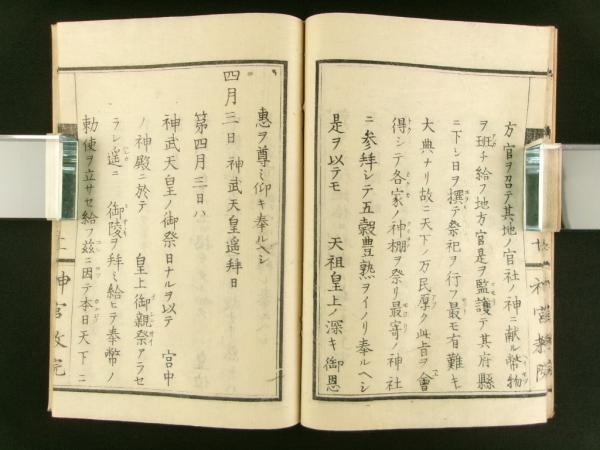 方官ヲ召テ其地ノ官社ノ神ニ献ル幣物
ヲ班チ給フ地方官是ヲ監護テ其府縣
ニ下シ日ヲ撰テ祭祀ヲ行フ最モ有難キ
大典ナリ故ニ天下ノ万民厚ク此旨ヲ會
得シテ各家ノ神棚ヲ祭リ最寄ノ神社
ニ参拜シテ五穀豊熟ヲイノリ奉ルヘシ
是ヲ以テモ 天祖皇上ノ深キ御恩
惠ヲ尊ミ仰キ奉ルヘシ
四月三日 神武天皇遥拜日
第四月三日ハ
神武天皇ノ御祭日ナルヲ以テ 宮中
ノ神殿ニ於テ 皇上御親祭アラセ
ラレ遥ニ 御陵ヲ拜ミ給ヒテ奉幣ノ
勅使ヲ立サセ給フ茲ニ因テ李日天下ニ
神宮教院